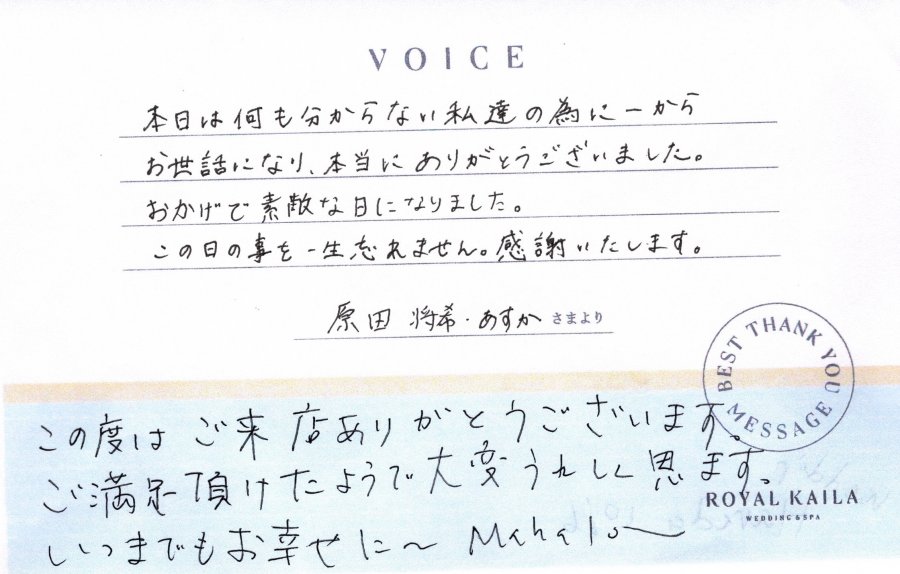 VOICE
本日は何も分からない私達の為に一から
お世話になり、本当にありがとうございました。
おかげで素敵な日になりました。
この日の事を一生忘れません。感謝いたします。
原田 将希・あすか さまより
BEST THANK YOU MESSAGE
この度はご来店ありがとうございます。
ご満足頂けたようで大変うれしく思ます。
ROYAL KAILA
WEDDING & SPA
いつまでもお幸せに〜 Mahalo〜